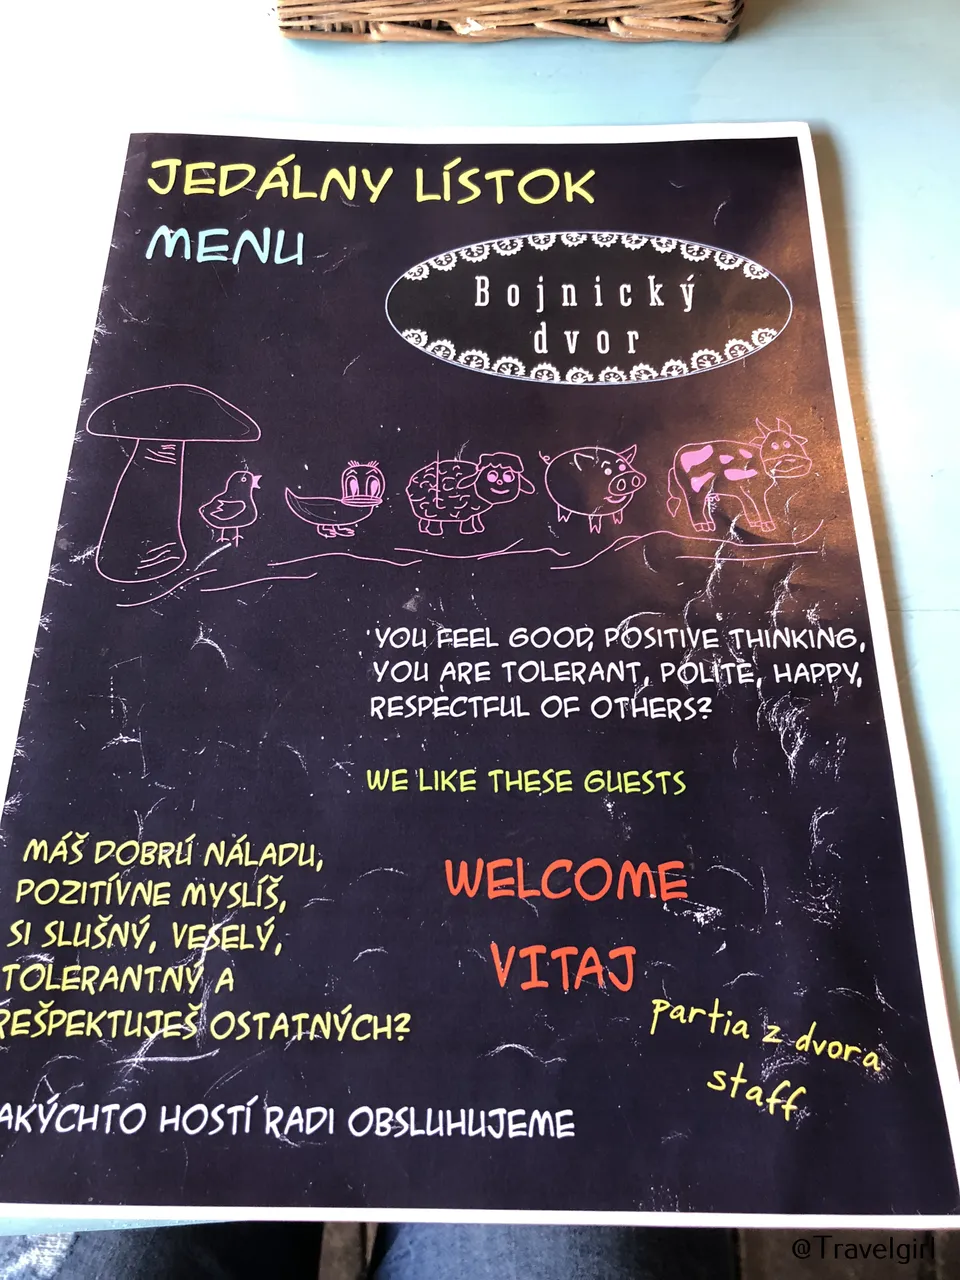 JEDÁLNY LÍSTOK
MENU
Bojnický
dvor
YOU FEEL GOOD, POSITIVE THINKING,
YOU ARE TOLERANT, POLITE, HAPPY,
RESPECTFUL OF OTHERS?
WE LIKE THESE GUESTS
MÁŠ DOBRÚ NÁLADU,
POZITÍVNE MYSLÍŠ,
SI SLUŠNÝ, VESELÝ,
TOLERANTNÝ A
REŠPEKTUJEŠ OSTATNÝCH?
AKÝCHTO HOSTÍ RADI OBSLUHUJEME
WELCOME
VITAJ
partia z dvora
staff
@Travelgirl